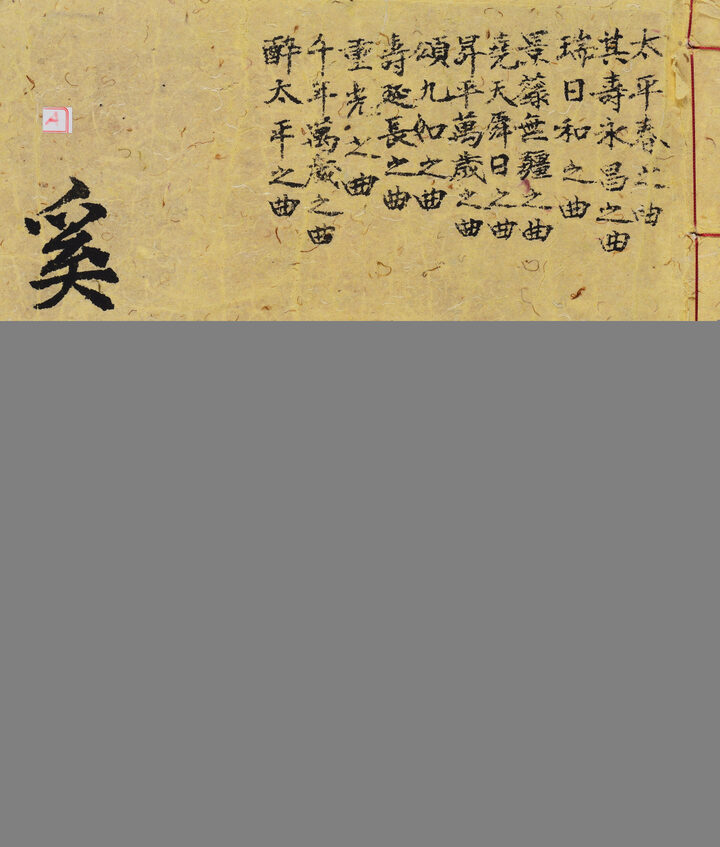 太平春之曲
其壽永昌之曲
瑞日和之曲
景籙無疆之曲
堯天舜日之曲
昇平萬歲之曲
頌九如之曲
壽延長之曲
重光之曲
千年萬歲之曲
醉太平之曲
奚